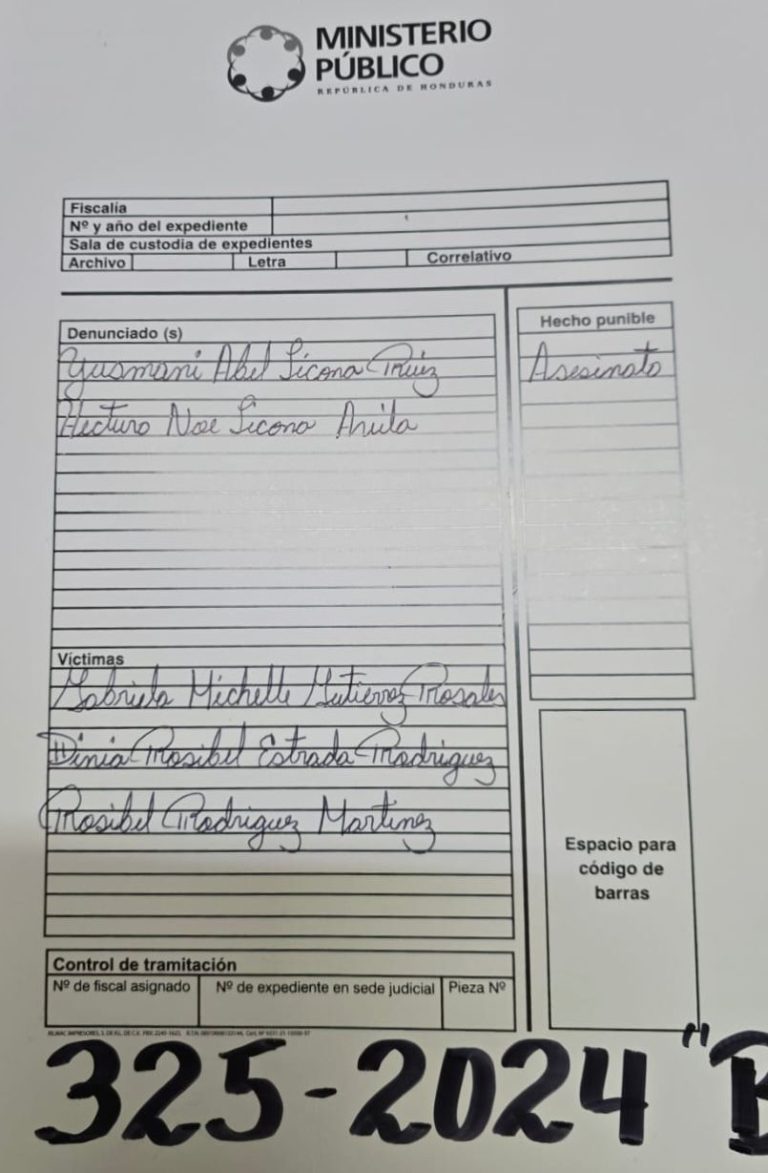 MINISTERIO
PÚBLICO
REPÚBLICA DE HONDURAS
Fiscalía
Nº y año del expediente
Sala de custodia de expedientes
Archivo Letra Correlativo
Denunciado (s)
Yusmani Abel Licona Ruiz
Hecturo Noe Licona Avila
Hecho punible
Asesinato
Víctimas
Gabriela Michelle Gutierrez Rosales
Dinia Rosibel Estrada Rodriguez
Rosibel Rodriguez Martinez
Espacio para
código de
barras
Control de tramitación
Nº de fiscal asignado Nº de expediente en sede judicial Pieza Nº
325-2024 "B